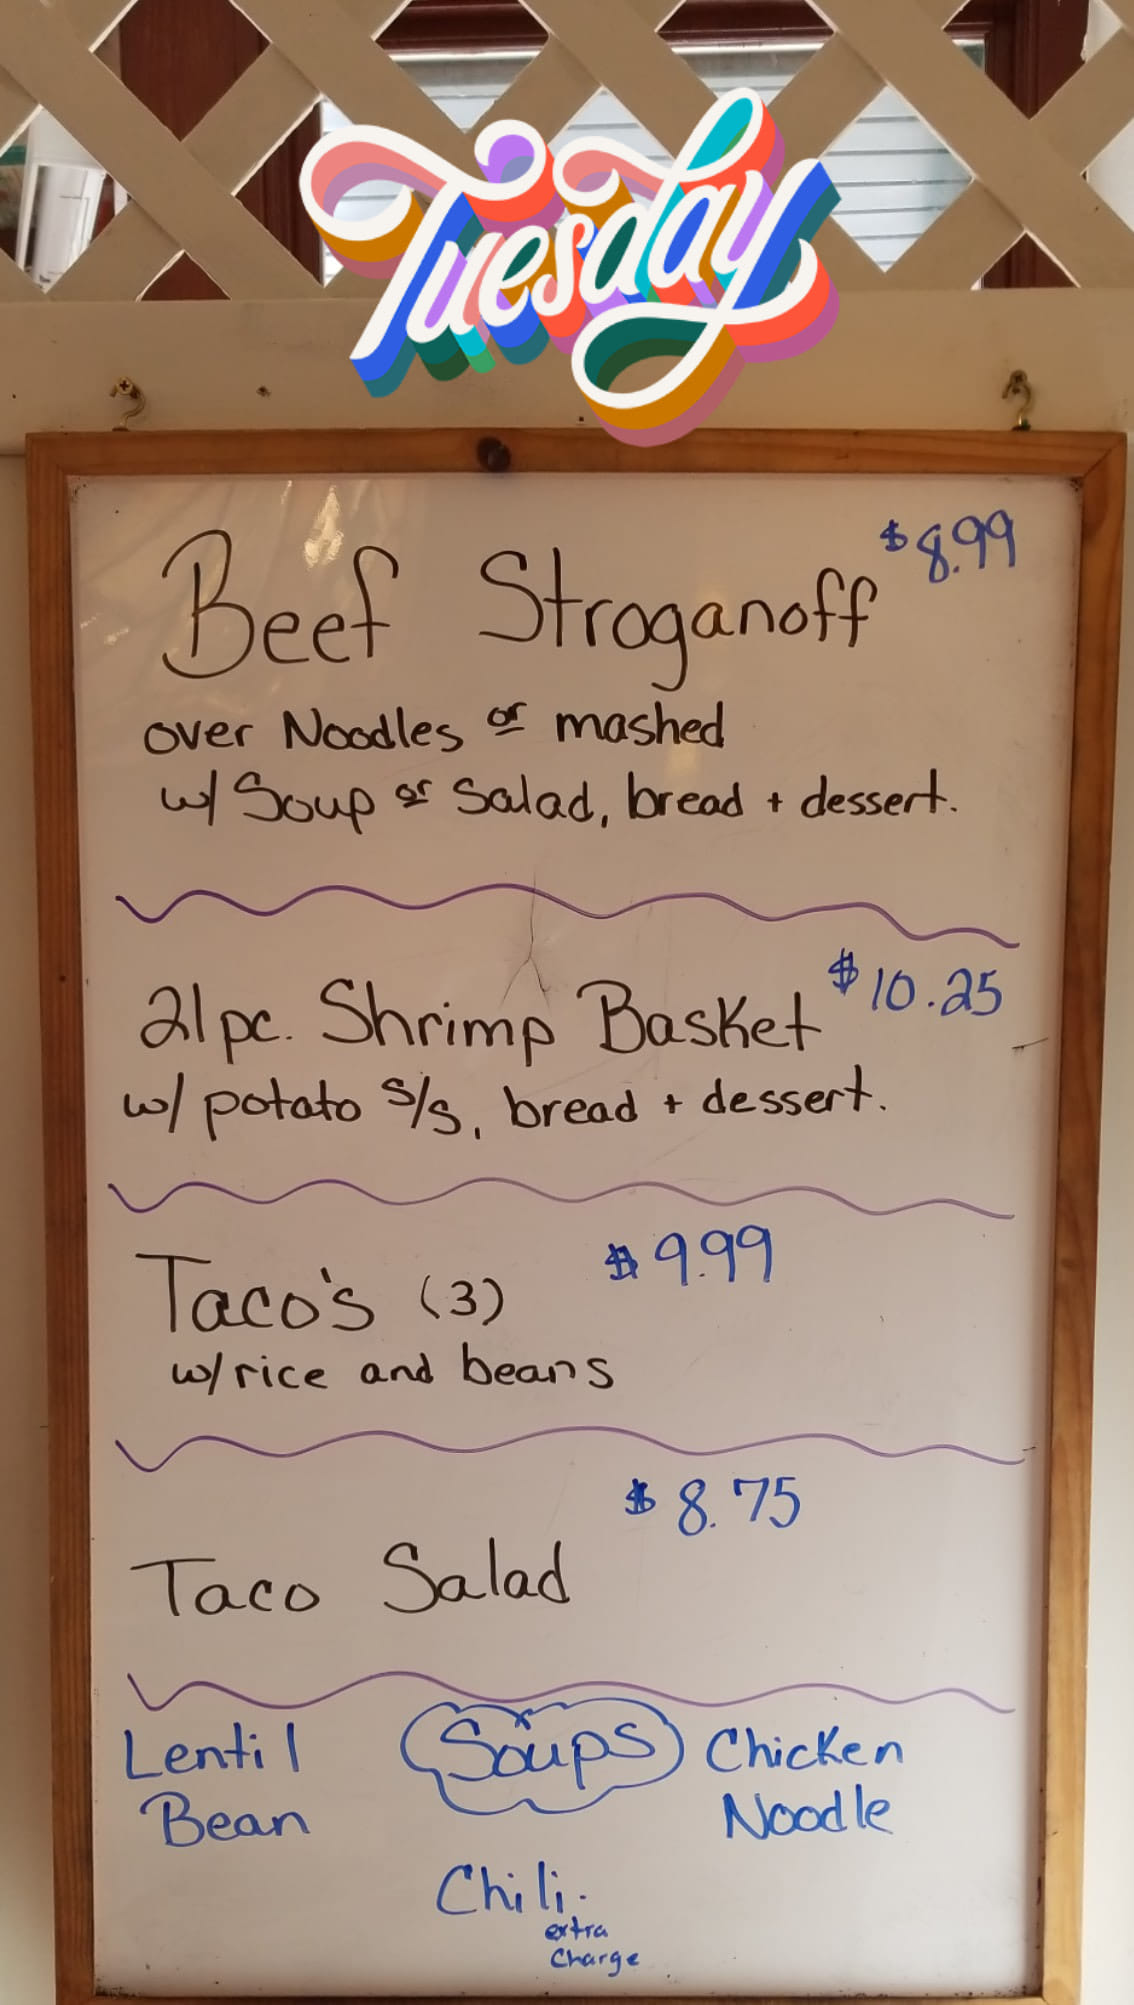 Tuesday
Beef Stroganoff $8.99
over Noodles or mashed
w/ Soup or Salad, bread + dessert.
21pc. Shrimp Basket $10.25
w/ potato s/s, bread + dessert.
Taco's (3) $9.99
w/rice and beans
$8.75
Taco Salad
Lentil Soups Chicken
Bean Noodle
Chili.
extra
Charge